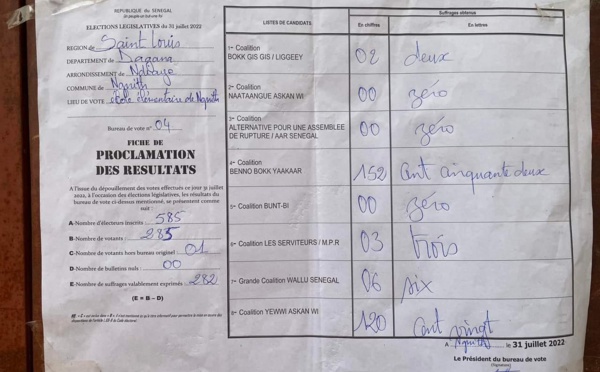 REPUBLIQUE DU SENEGAL
ELECTIONS LEGISLATIVES du 31 juillet 2022
REGION de Saint Louis
DEPARTEMENT de Dagana
ARRONDISSEMENT de Ndiaye
COMMUNE de Ngnith
LIEU DE VOTE école élémentaire de Ngnith
Bureau de vote n° 04
FICHE DE
PROCLAMATION
DES RESULTATS
A l'issue du dépouillement des votes effectués ce jour 31 juillet
2022, à l'occasion des élections législatives, les résultats du
bureau de vote ci-dessus mentionné, se présentent comme
suit :
A-Nombre d'électeurs inscrits : 585
B-Nombre de votants : 285
C-Nombre de votants hors bureau originel : 01
D-Nombre de bulletins nuls : 00
E-Nombre de suffrages valablement exprimés : 282
(E = B – D)
LISTES DE CANDIDATS
Suffrages obtenus
En chiffres
En lettres
1- Coalition
BOKK GIS GIS / LIGGEEY
02
deux
2- Coalition
NAATAANGUE ASKAN WI
00
zéro
3- Coalition
ALTERNATIVE POUR UNE ASSEMBLEE
DE RUPTURE / AAR SENEGAL
00
zéro
4- Coalition
BENNO BOKK YAAKAAR
152
cent cinquante deux
5- Coalition BUNT-BI
00
zéro
6- Coalition LES SERVITEURS / M.P.R
03
trois
7- Grande Coalition WALLU SENEGAL
06
six
8- Coalition YEWWI ASKAN WI
120
cent vingt
A Ngnith le 31 juillet 2022
Le Président du bureau de vote